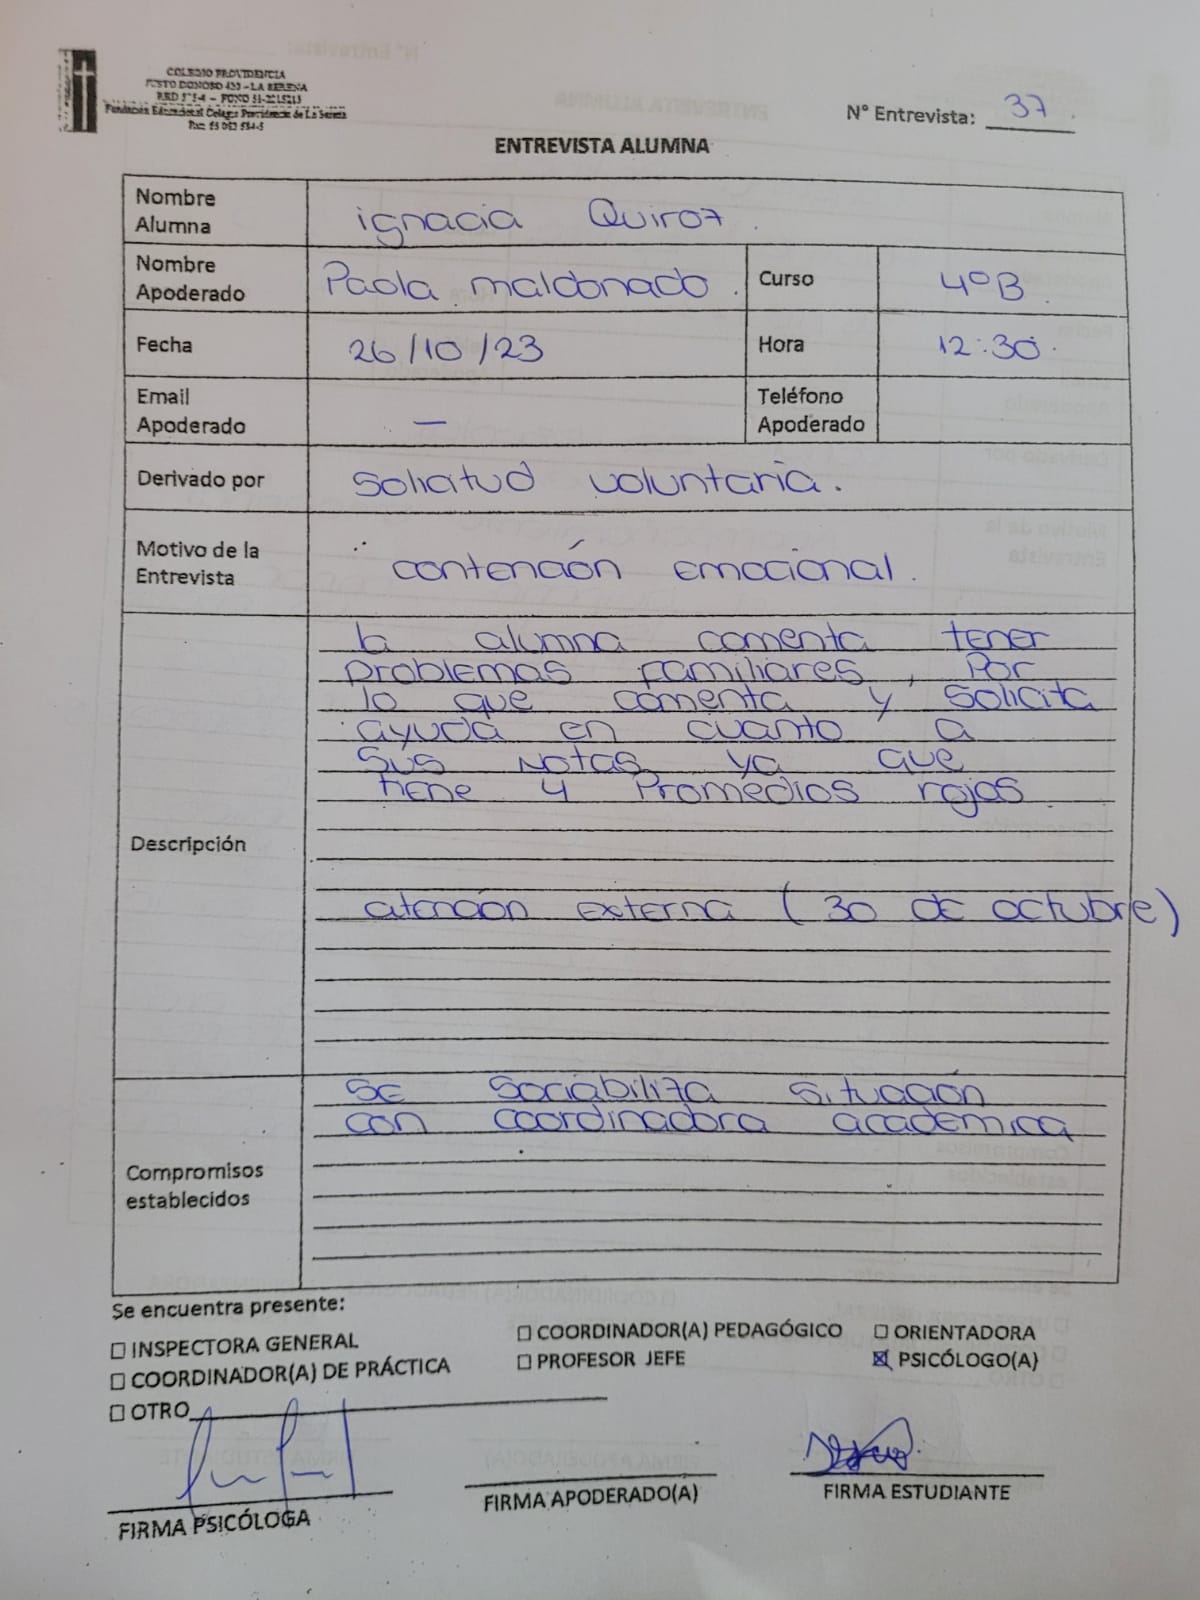 COLEGIO PROVIDENCIA
JUSTO DONOSO 420 - LA SERENA
Fundación Educacional Colegio Providencia de La Serena
N° Entrevista: 37.
ENTREVISTA ALUMNA
Nombre Alumna
ignacia Quiroz.
Nombre Apoderado
Paola maldonado.
Curso
4°B.
Fecha
26/10/23
Hora
12:30.
Email Apoderado
—
Teléfono Apoderado
Derivado por
Solicitud voluntaria.
Motivo de la Entrevista
contención emocional.
Descripción
la alumna comenta tener
problemas familiares, Por
lo que comenta y solicita
ayuda en cuanto a
sus notas ya que
tiene 4 Promedios rojos
atención externa (30 de octubre)
Compromisos establecidos
se sociabiliza situación
con coordinadora academica
Se encuentra presente:
☐ INSPECTORA GENERAL
☐ COORDINADOR(A) PEDAGÓGICO
☐ ORIENTADORA
☐ COORDINADOR(A) DE PRÁCTICA
☐ PROFESOR JEFE
☒ PSICÓLOGO(A)
☐ OTRO
FIRMA PSICÓLOGA
FIRMA APODERADO(A)
FIRMA ESTUDIANTE